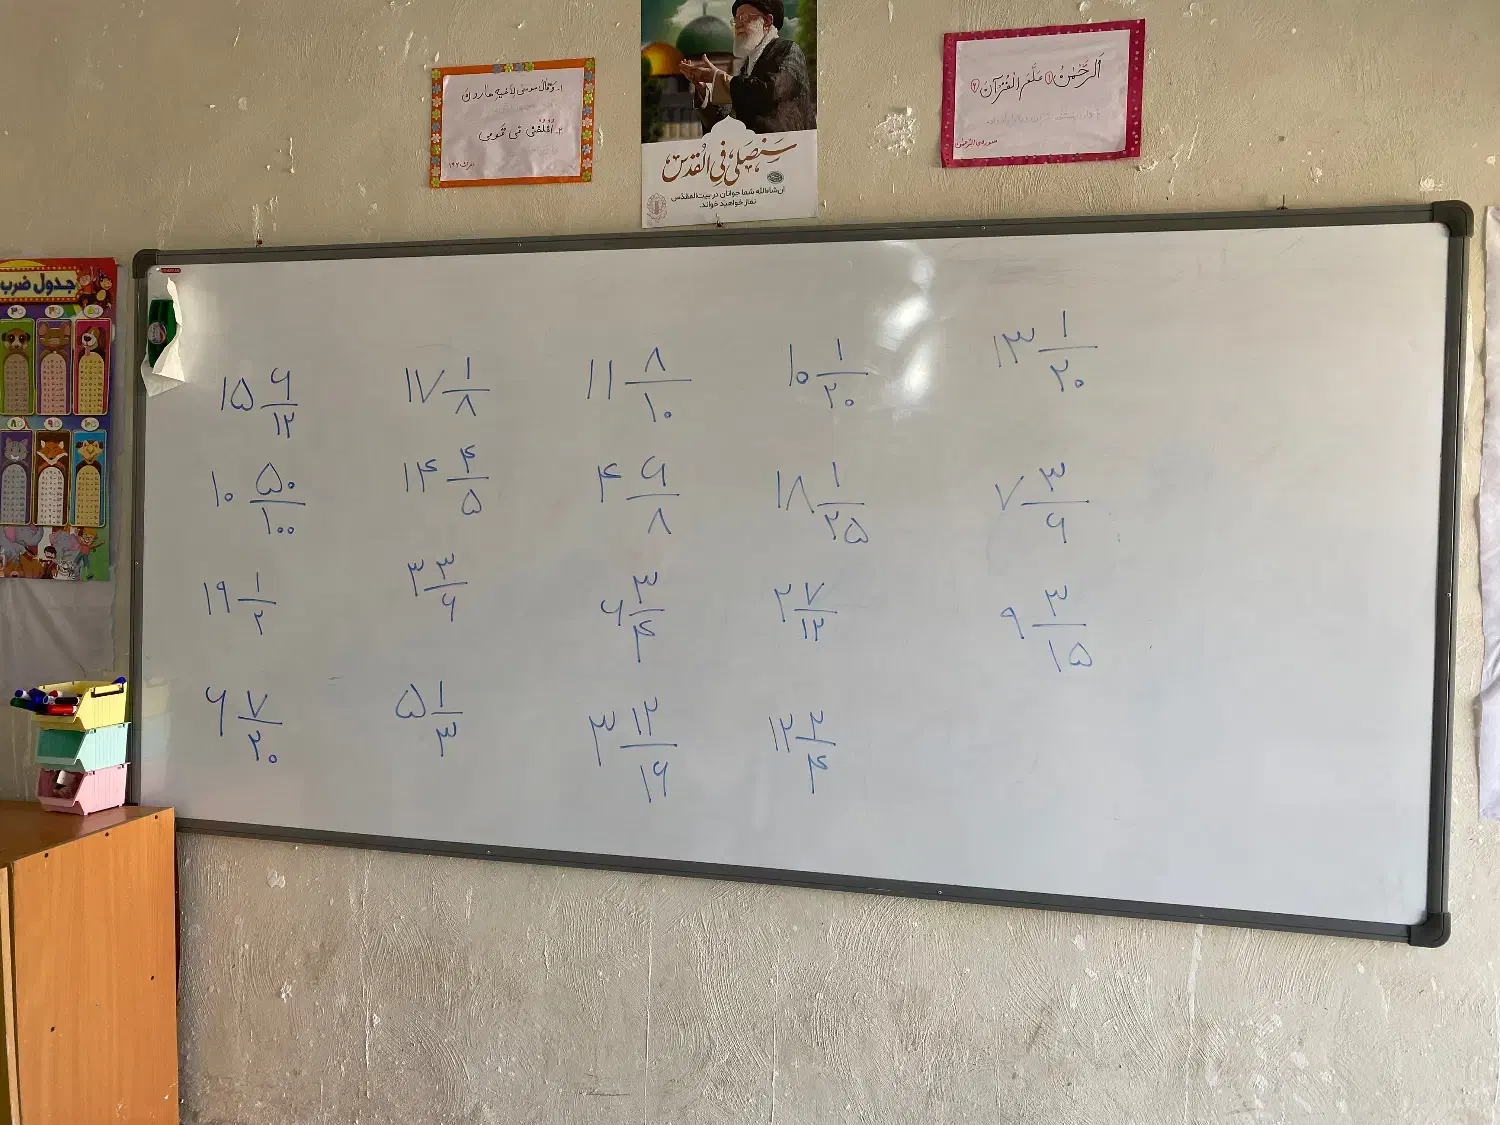 ۱- وَقالَ موسی لِأَخیهِ هارونَ
۲- اُخْلُفْنی فی قَومی
اعراف ۱۴۲
سَنُصَلّي فِي الْقُدْس
ان‌شاءالله شما جوانان در بیت‌المقدّس
نماز خواهید خواند.
اَلرَّحْمٰنُ ۱ عَلَّمَ الْقُرْآنَ ۲
سوره‌ی الرحمن
جدول ضرب
۱۵ ۶/۱۲ ۱۷ ۱/۸ ۱۱ ۸/۱۰ ۱۰ ۱/۲۰ ۱۳ ۱/۲۰
۱۰ ۵۰/۱۰۰ ۱۴ ۴/۵ ۴ ۶/۸ ۱۸ ۱/۲۵ ۷ ۳/۶
۱۹ ۱/۲ ۳ ۳/۶ ۶ ۳/۴ ۲ ۷/۱۲ ۹ ۳/۱۵
۶ ۷/۲۰ ۵ ۱/۳ ۳ ۱۲/۱۶ ۱۲ ۲/۴